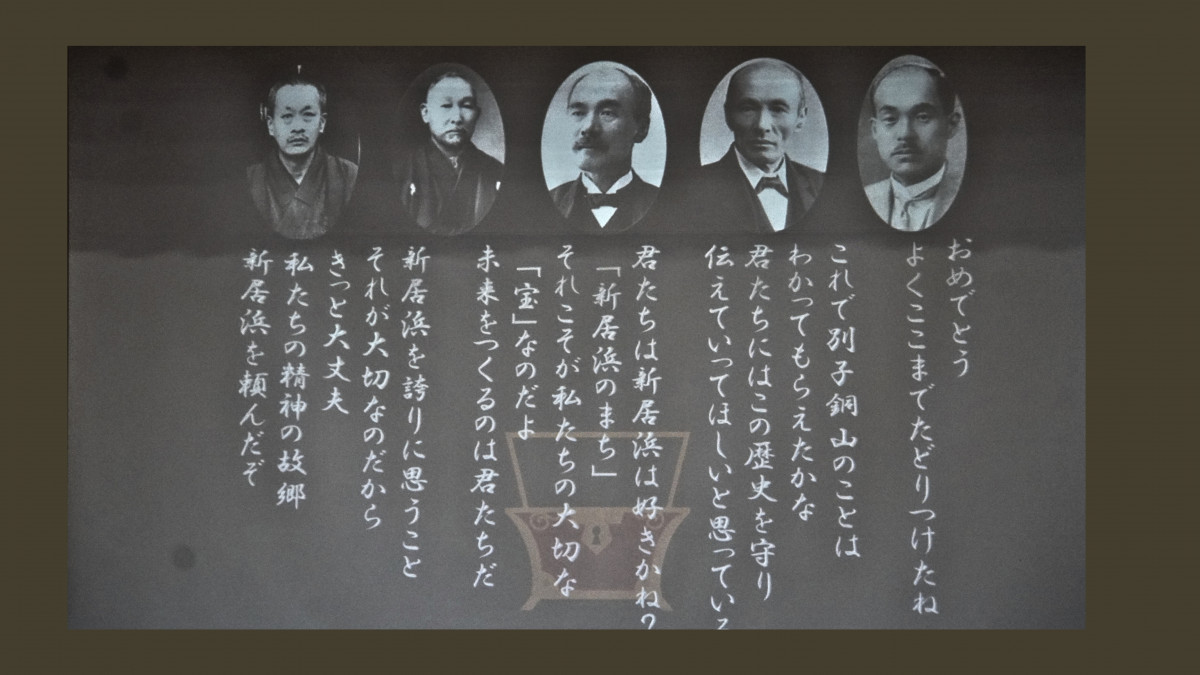 おめでとう
よくここまでたどりつけたね
これで別子銅山のことは
わかってもらえたかな
君たちにはこの歴史を守り
伝えていってほしいと思っている
君たちは新居浜は好きかね?
「新居浜のまち」
それこそが私たちの大切な
「宝」なのだよ
未来をつくるのは君たちだ
新居浜を誇りに思うこと
それが大切なのだから
きっと大丈夫
私たちの精神の故郷
新居浜を頼んだぞ